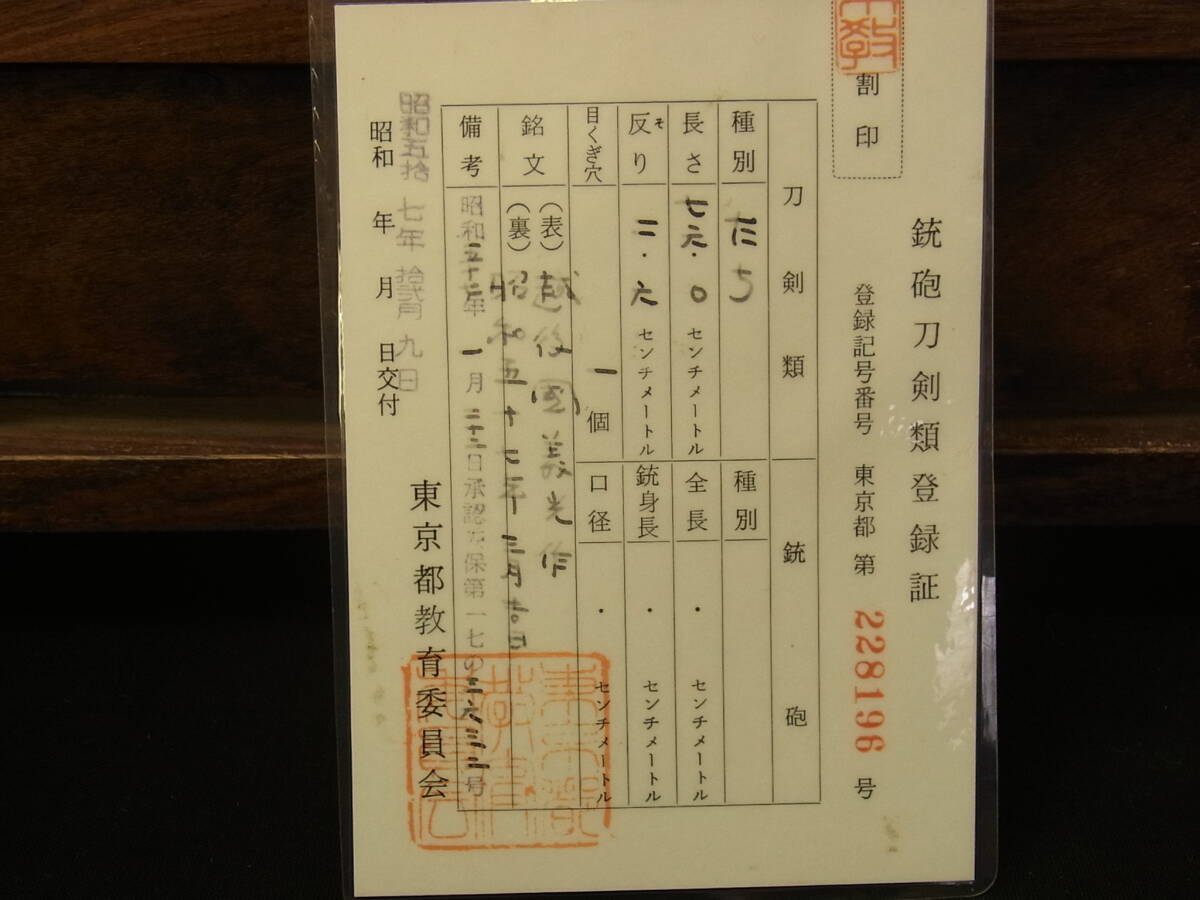 銃砲刀剣類登録証
割印
登録記号番号 東京都 第 228196 号
刀剣類
銃砲
種別 たち
種別
長さ 七六.〇 センチメートル
全長 ・ センチメートル
反り 二.六 センチメートル
そ
銃身長 ・ センチメートル
目くぎ穴 一個
口径 ・ センチメートル
銘文 (表) 越後国義光作
(裏) 昭和五十七年三月六日
備考 昭和五十七年一月二十二日承認 保第一七の三六三二号
昭和 年 月 日交付
昭和五拾七年拾弐月九日
東京都教育委員会